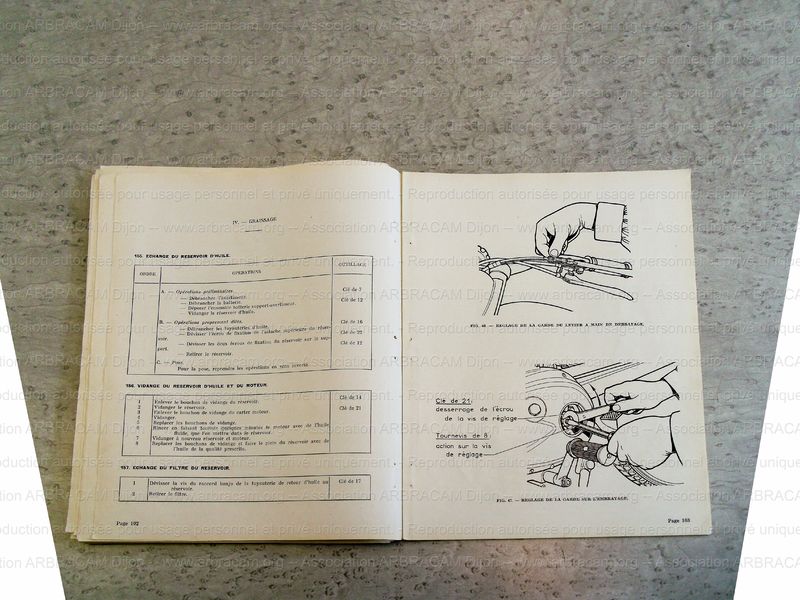 IV. — GRAISSAGE
155. ECHANGE DU RESERVOIR D'HUILE.
ORDRE OPERATIONS OUTILLAGE
A. — Opérations préliminaires.
— Débrancher l'avertisseur. Clé de 7
— Débrancher la batterie. Clé de 12
— Déposer l'ensemble batterie support-avertisseur.
Vidanger le réservoir d'huile.
B. — Opérations proprement dites. Clé de 16
— Débrancher les tuyauteries d'huile.
— Dévisser l'écrou de fixation de l'attache supérieure du réser- Clé de 22
voir.
— Dévisser les deux écrous de fixation du réservoir sur le sup- Clé de 12
port.
Retirer le réservoir.
C. — Pose.
Pour la pose, reprendre les opérations en sens inverse.
156. VIDANGE DU RESERVOIR D'HUILE ET DU MOTEUR.
1 Enlever le bouchon de vidange du réservoir. Clé de 14
2 Vidanger le réservoir. Clé de 21
3 Enlever le bouchon de vidange du carter moteur.
4 Vidanger.
5 Replacer les bouchons de vidange.
6 Rincer en faisant tourner quelques minutes le moteur avec de l'huile
fluide, que l'on mettra dans le réservoir.
7 Vidanger à nouveau réservoir et moteur.
8 Replacer les bouchons de vidange et faire le plein du réservoir avec de
l'huile de la qualité prescrite.
157. ECHANGE DU FILTRE DU RESERVOIR.
1 Dévisser la vis du raccord banjo de la tuyauterie de retour d'huile au Clé de 17
réservoir.
2 Retirer le filtre.
Page 102
FIG. 46 — REGLAGE DE LA GARDE DU LEVIER A MAIN DE DEBRAYAGE.
Clé de 21:
desserrage de l'écrou
de la vis de réglage
Tournevis de 8:
action sur la vis
de réglage
FIG. 47. — REGLAGE DE LA GARDE SUR L'EMBRAYAGE.
Page 103
Reproduction autorisée pour usage personnel et privé uniquement. -- Association ARBRACAM Dijon -- www.arbracam.org --